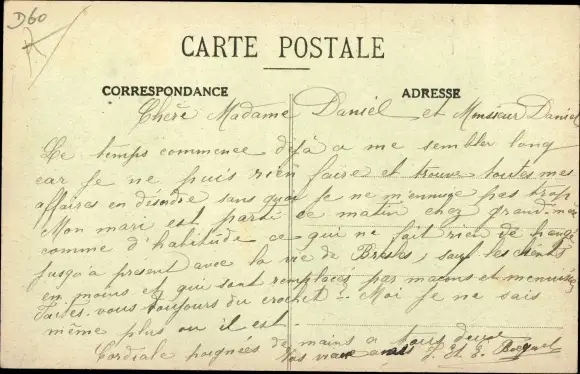 D60
CARTE POSTALE
CORRESPONDANCE
ADRESSE
Chère Madame Daniel et Monsieur Daniel
Le temps commence déjà a me sembler long
car je ne puis rien faire et trouve toutes mes
affaires en désordre sans quoi je ne m'ennuye pas trop
Mon mari est parti ce matin chez grand-mère
comme d'habitude ce qui ne fait rien de changé
jusqu'à présent avec la vie de Bresles, sauf les clients
en moins et qui sont remplacés par maçons et menuisiers
Faites-vous toujours du crochet - Moi je ne sais
même plus ou il est -
Cordiale poignées de mains a tous deux
Vos vieux amis J. et E.